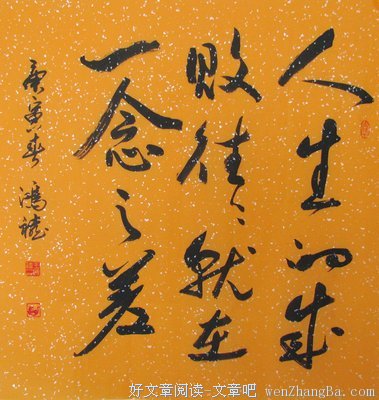 人生的成
败往々就在
一念之差
庚寅春 鸿
好文章阅读-文章吧 wenZhangBa.com